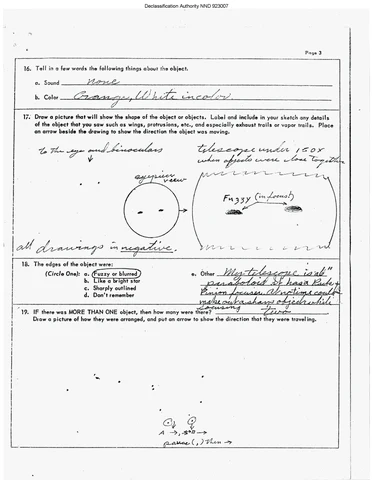 Declassification Authority, NND 923007
Page 3
16. Tell in a few words the following things about the object.
a. Sound none
b. Color Orange, White in color.
17. Draw a picture that will show the shape of the object or objects. Label and include in your sketch any details
of the object that you saw such as wings, protrusions, etc., and especially exhaust trails or vapor trails. Place
an arrow beside the drawing to show the direction the object was moving.
to the eye and binoculars
telescope under 150X
when objects were close together
eyepiece
view
Fuzzy (in focus)
all drawings in negative.
18. The edges of the object were:
(Circle One): a. Fuzzy or blurred
b. Like a bright star
c. Sharply outlined
d. Don't remember
e. Other My telescope is a 6"
paraboloid it has a Rack &
Pinion focuser. At no time could
make out a sharp object while
focusing
19. IF there was MORE THAN ONE object, then how many were there? two
Draw a picture of how they were arranged, and put an arrow to show the direction that they were traveling.
A → B →
pause (,) then →